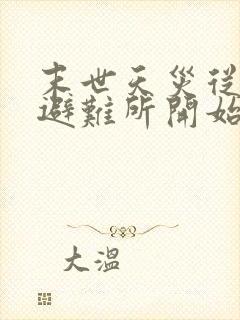 末世天災從
避難所開始
大溫